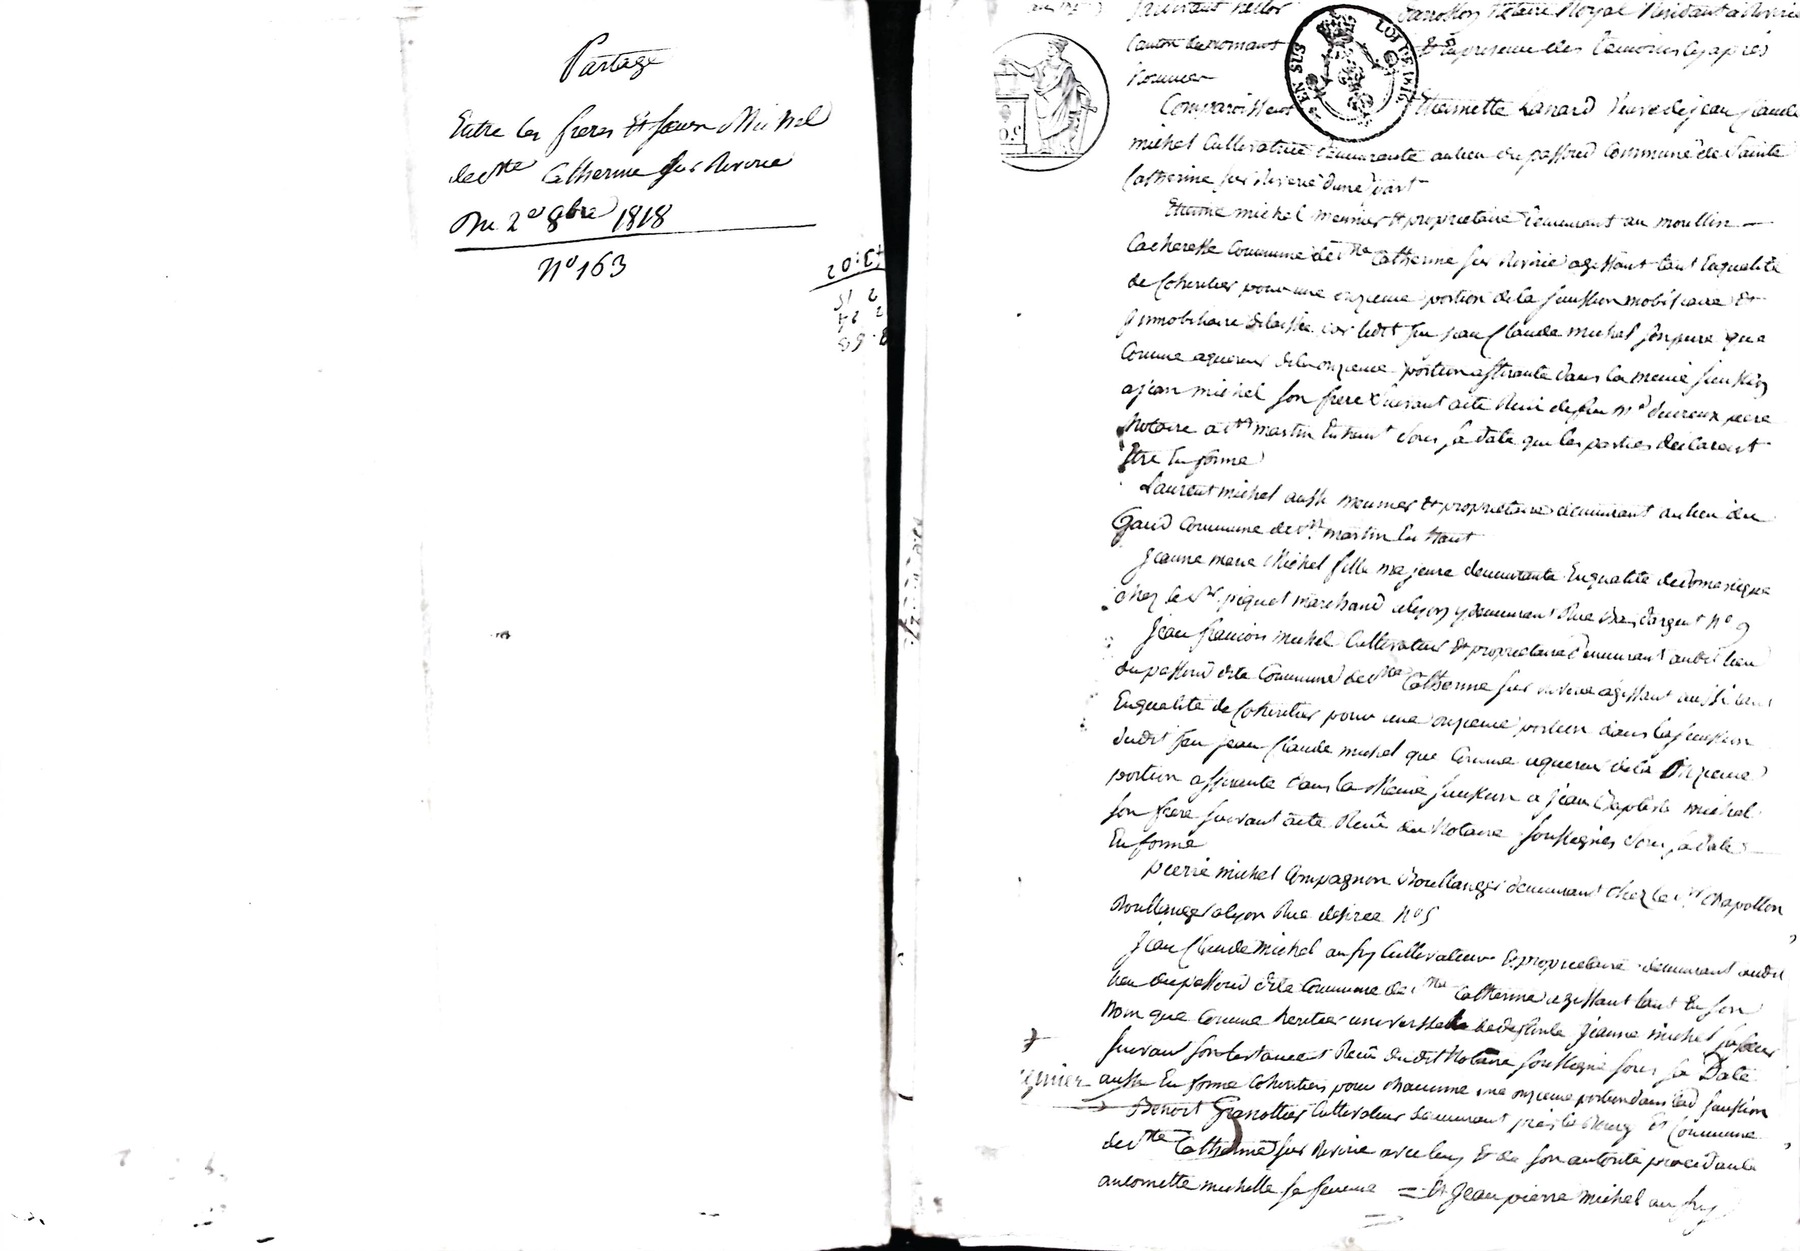 Partage
Entre les freres Et soeurs Michel
de Ste Catherine sur Riverie
Du 2e 8bre 1818
N° 163
pardevant
Notaire Royal Résidant a Riverie
Canton de mornant
Et En presence des temoins cy après
Nommés
EN SUS
LOI DE 1816.
Comparoissent
Etiennette Lanard Veuve de jean Claude
michel Cultivatrice demeurante au lieu du passoud Commune de Sainte
Catherine sur Riverie d'une part
Etienne michel meunier Et proprietaire demeurant au moullin
Cacheresse Commune de Ste Catherine sur Riverie agissant tant En qualité
de Coheritier pour une onzieme portion de la suission mobiliaire Et
jmmobiliaire delaissée par ledit feu jean Claude michel son pere que
Comme aquereur de la onzieme portion afferante dans la meme suission
a jean michel son frere suivant acte Reçu de feu Me ducreux pere
Notaire a St martin En haut sous sa date que les parties declarent
Etre En forme
Laurent michel aussi meunier Et proprietaire demeurant au lieu du
Gaud Commune de St martin En haut
Jeanne marie Michel fille majeure demeurante En qualité de domestique
chez le Sr piquet marchand a Lyon y demeurant Rue Bas d'argent N° 9
Jean francois michel Cultivateur Et proprietaire demeurant audit lieu
du passoud dite Commune de Ste Catherine sur Riverie agissant aussi tant
En qualité de Coheritier pour une onzieme portion dans la suission
dudit feu jean Claude michel que Comme aquereur de la Onzieme
portion afferante dans la Meme suission a jean Baptiste michel
son frere suivant acte Reçu du Notaire soussigné sous sa date
En forme
pierre michel Compagnon Boullanger demeurant chez le Sr Chapollon
Boullanger a lyon Rue desirée N° 5
Jean Claude michel aussy Cultivateur Et proprietaire demeurant audit
lieu du passoud dite Commune de Ste Catherine agissant tant En son
Nom que Comme heritier universelle de deffunte Jeanne michel sa soeur
suivant son testament Reçu dudit Notaire soussigné sous sa Date
aussi En forme Coheritiers pour chacunne une onzieme portion dans lad suission
Benoit Granottier Cultivateur demeurant près le Bourg Et Commune
de Ste Catherine sur Riverie avec luy Et de son autorité procedante
antoinette michelle sa femme = Et Jean pierre michel aussy